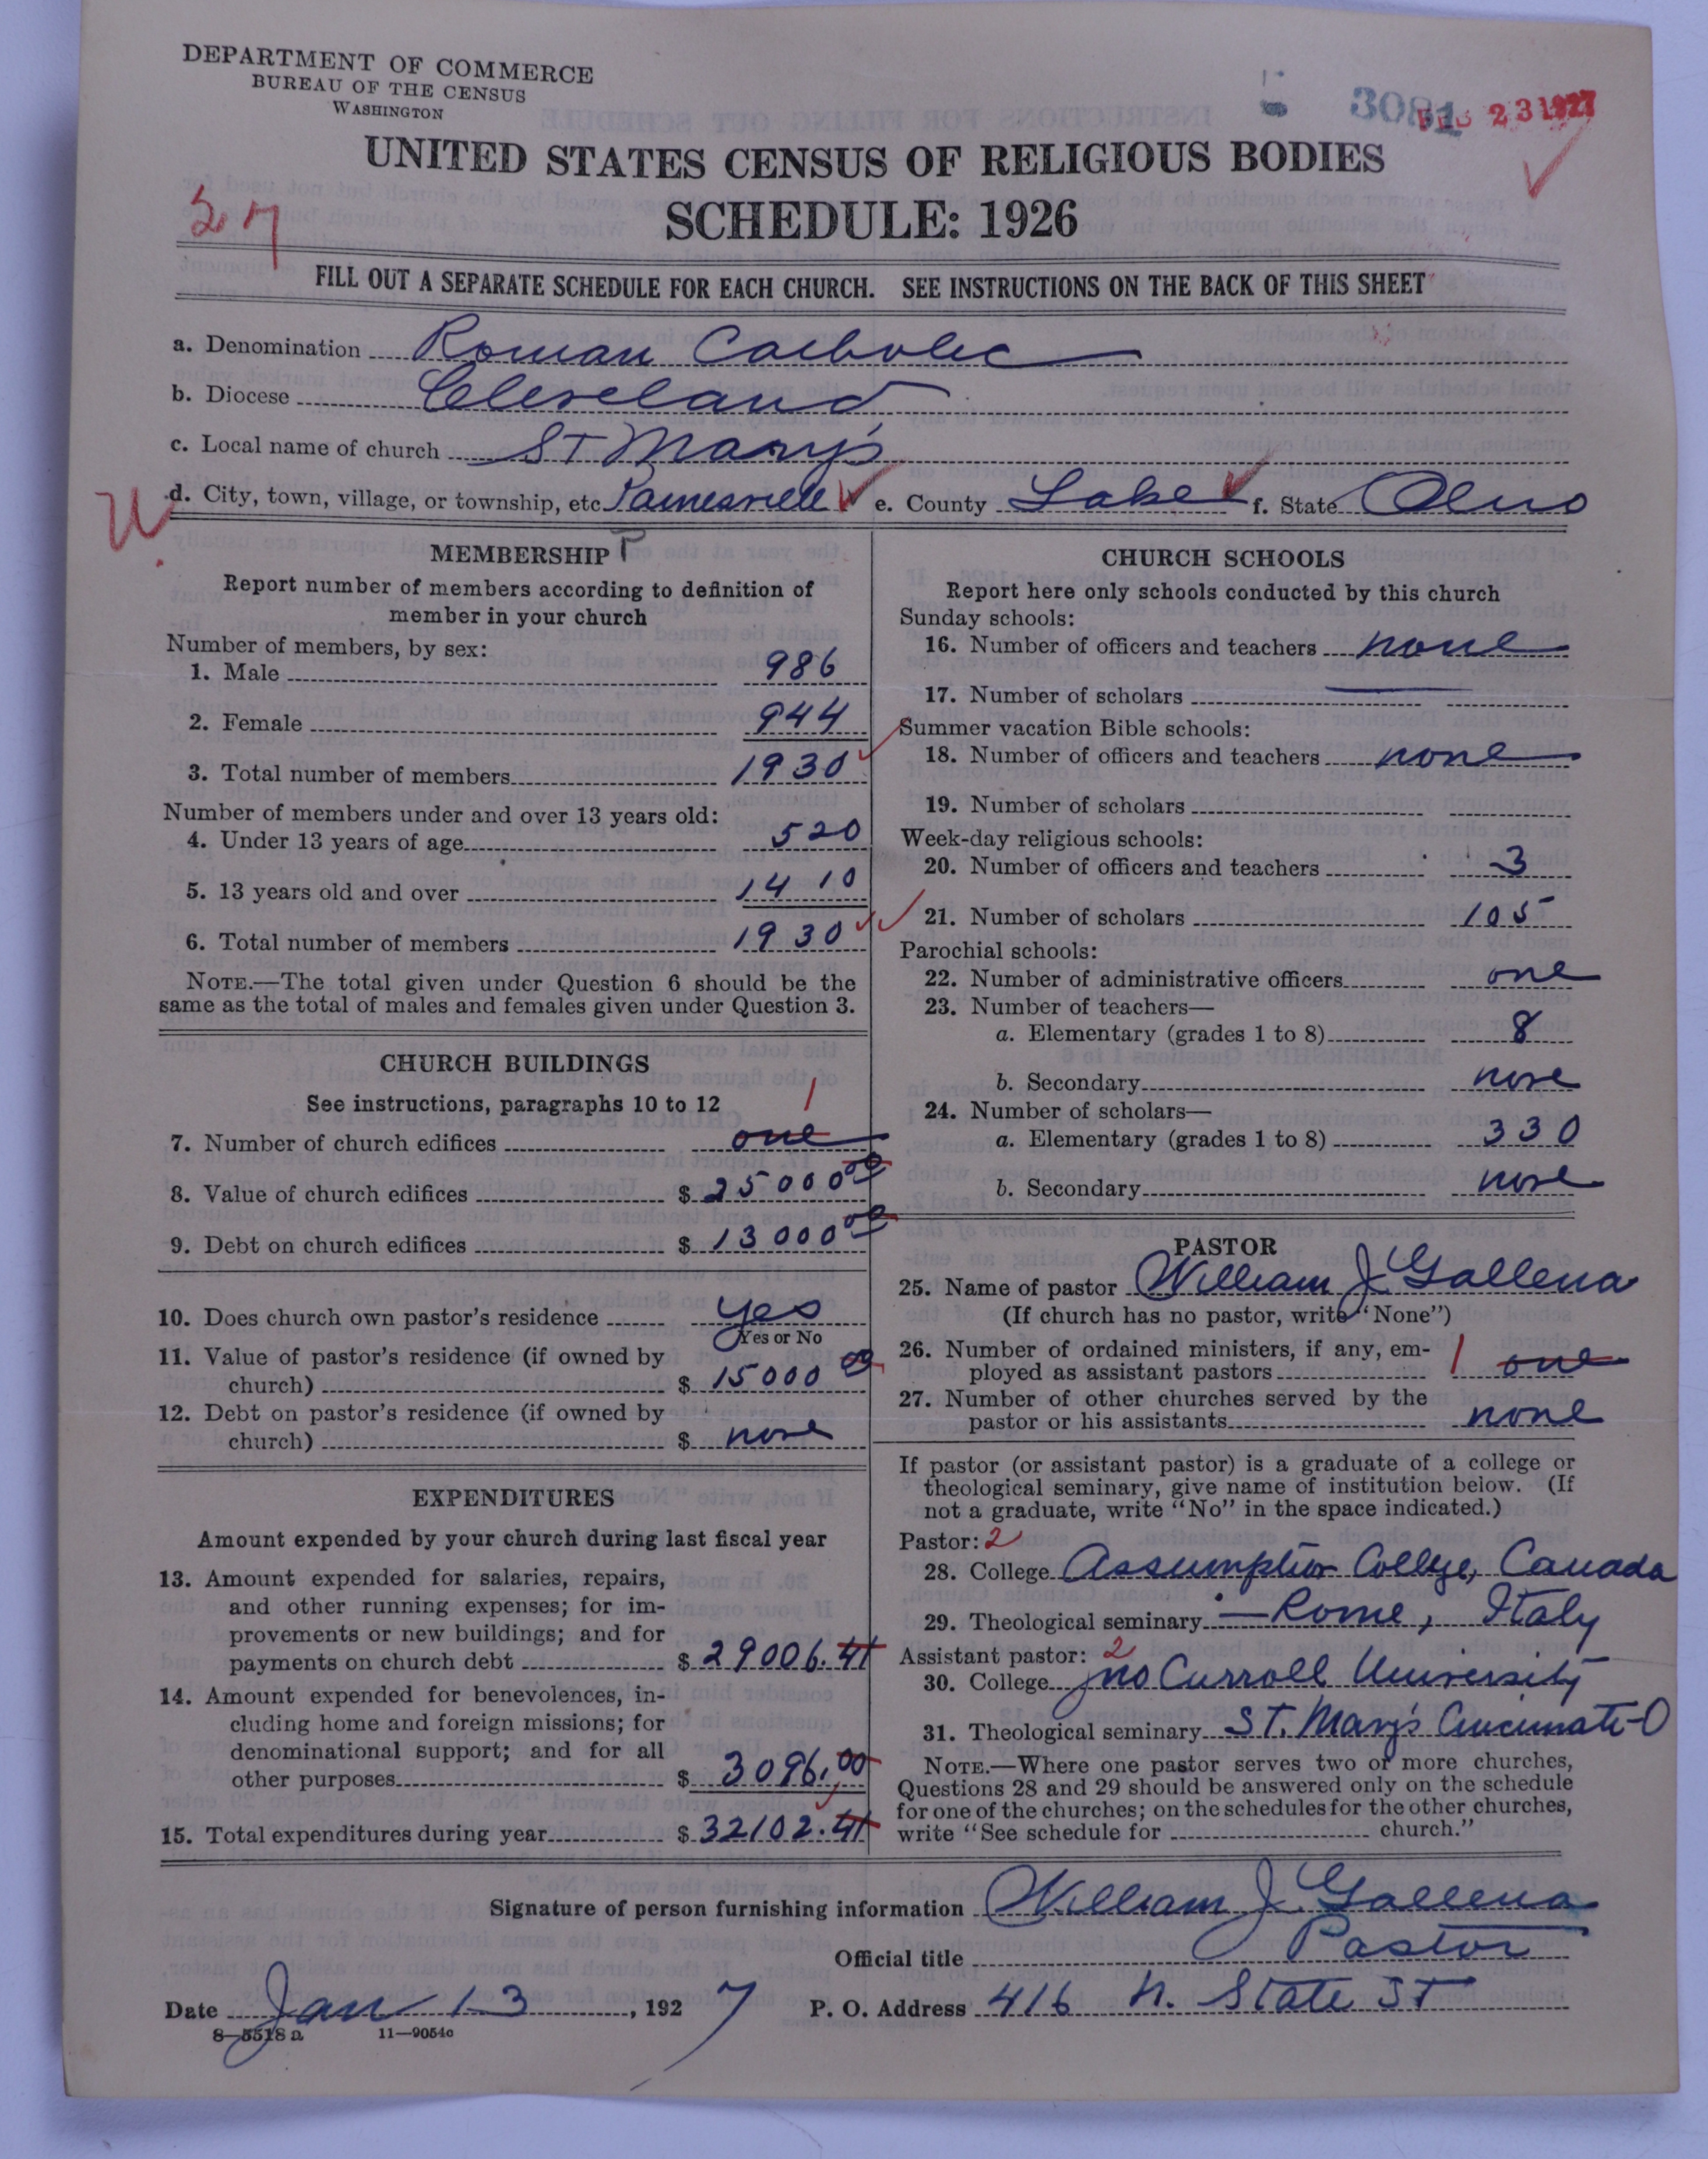 DEPARTMENT OF COMMERCE
BUREAU OF THE CENSUS
WASHINGTON
3081
FEB 23 1927
UNITED STATES CENSUS OF RELIGIOUS BODIES
SCHEDULE: 1926
FILL OUT A SEPARATE SCHEDULE FOR EACH CHURCH. SEE INSTRUCTIONS ON THE BACK OF THIS SHEET
a. Denomination Roman Catholic
b. Diocese Cleveland
c. Local name of church St Mary's
d. City, town, village, or township, etc Painesville e. County Lake f. State Ohio
MEMBERSHIP
Report number of members according to definition of
member in your church
Number of members, by sex:
1. Male 986
2. Female 944
3. Total number of members 1930
Number of members under and over 13 years old:
4. Under 13 years of age 520
5. 13 years old and over 1410
6. Total number of members 1930
NOTE.—The total given under Question 6 should be the
same as the total of males and females given under Question 3.
CHURCH BUILDINGS
See instructions, paragraphs 10 to 12
1
7. Number of church edifices one
8. Value of church edifices $ 25000 00
9. Debt on church edifices $ 13000 00
10. Does church own pastor's residence yes
Yes or No
11. Value of pastor's residence (if owned by
church) $ 15000 00
12. Debt on pastor's residence (if owned by
church) $ none
EXPENDITURES
Amount expended by your church during last fiscal year
13. Amount expended for salaries, repairs,
and other running expenses; for im-
provements or new buildings; and for
payments on church debt $ 29006.41
14. Amount expended for benevolences, in-
cluding home and foreign missions; for
denominational support; and for all
other purposes $ 3096.00
15. Total expenditures during year $ 32102.41
CHURCH SCHOOLS
Report here only schools conducted by this church
Sunday schools:
16. Number of officers and teachers none
17. Number of scholars
Summer vacation Bible schools:
18. Number of officers and teachers none
19. Number of scholars
Week-day religious schools:
20. Number of officers and teachers 3
21. Number of scholars 105
Parochial schools:
22. Number of administrative officers one
23. Number of teachers—
a. Elementary (grades 1 to 8) 8
b. Secondary none
24. Number of scholars—
a. Elementary (grades 1 to 8) 330
b. Secondary none
PASTOR
25. Name of pastor William J. Gallena
(If church has no pastor, write "None")
26. Number of ordained ministers, if any, em-
ployed as assistant pastors 1 one
27. Number of other churches served by the
pastor or his assistants none
If pastor (or assistant pastor) is a graduate of a college or
theological seminary, give name of institution below. (If
not a graduate, write "No" in the space indicated.)
Pastor: 2
28. College Assumption College, Canada
29. Theological seminary — Rome, Italy
Assistant pastor: 2
30. College Jno Carroll University
31. Theological seminary St. Mary's Cincinnati-O
NOTE.—Where one pastor serves two or more churches,
Questions 28 and 29 should be answered only on the schedule
for one of the churches; on the schedules for the other churches,
write "See schedule for church."
Signature of person furnishing information William J. Gallena
Official title Pastor
Date Jan 13, 1927 P. O. Address 416 N. State St
8—5518a 11—9054c